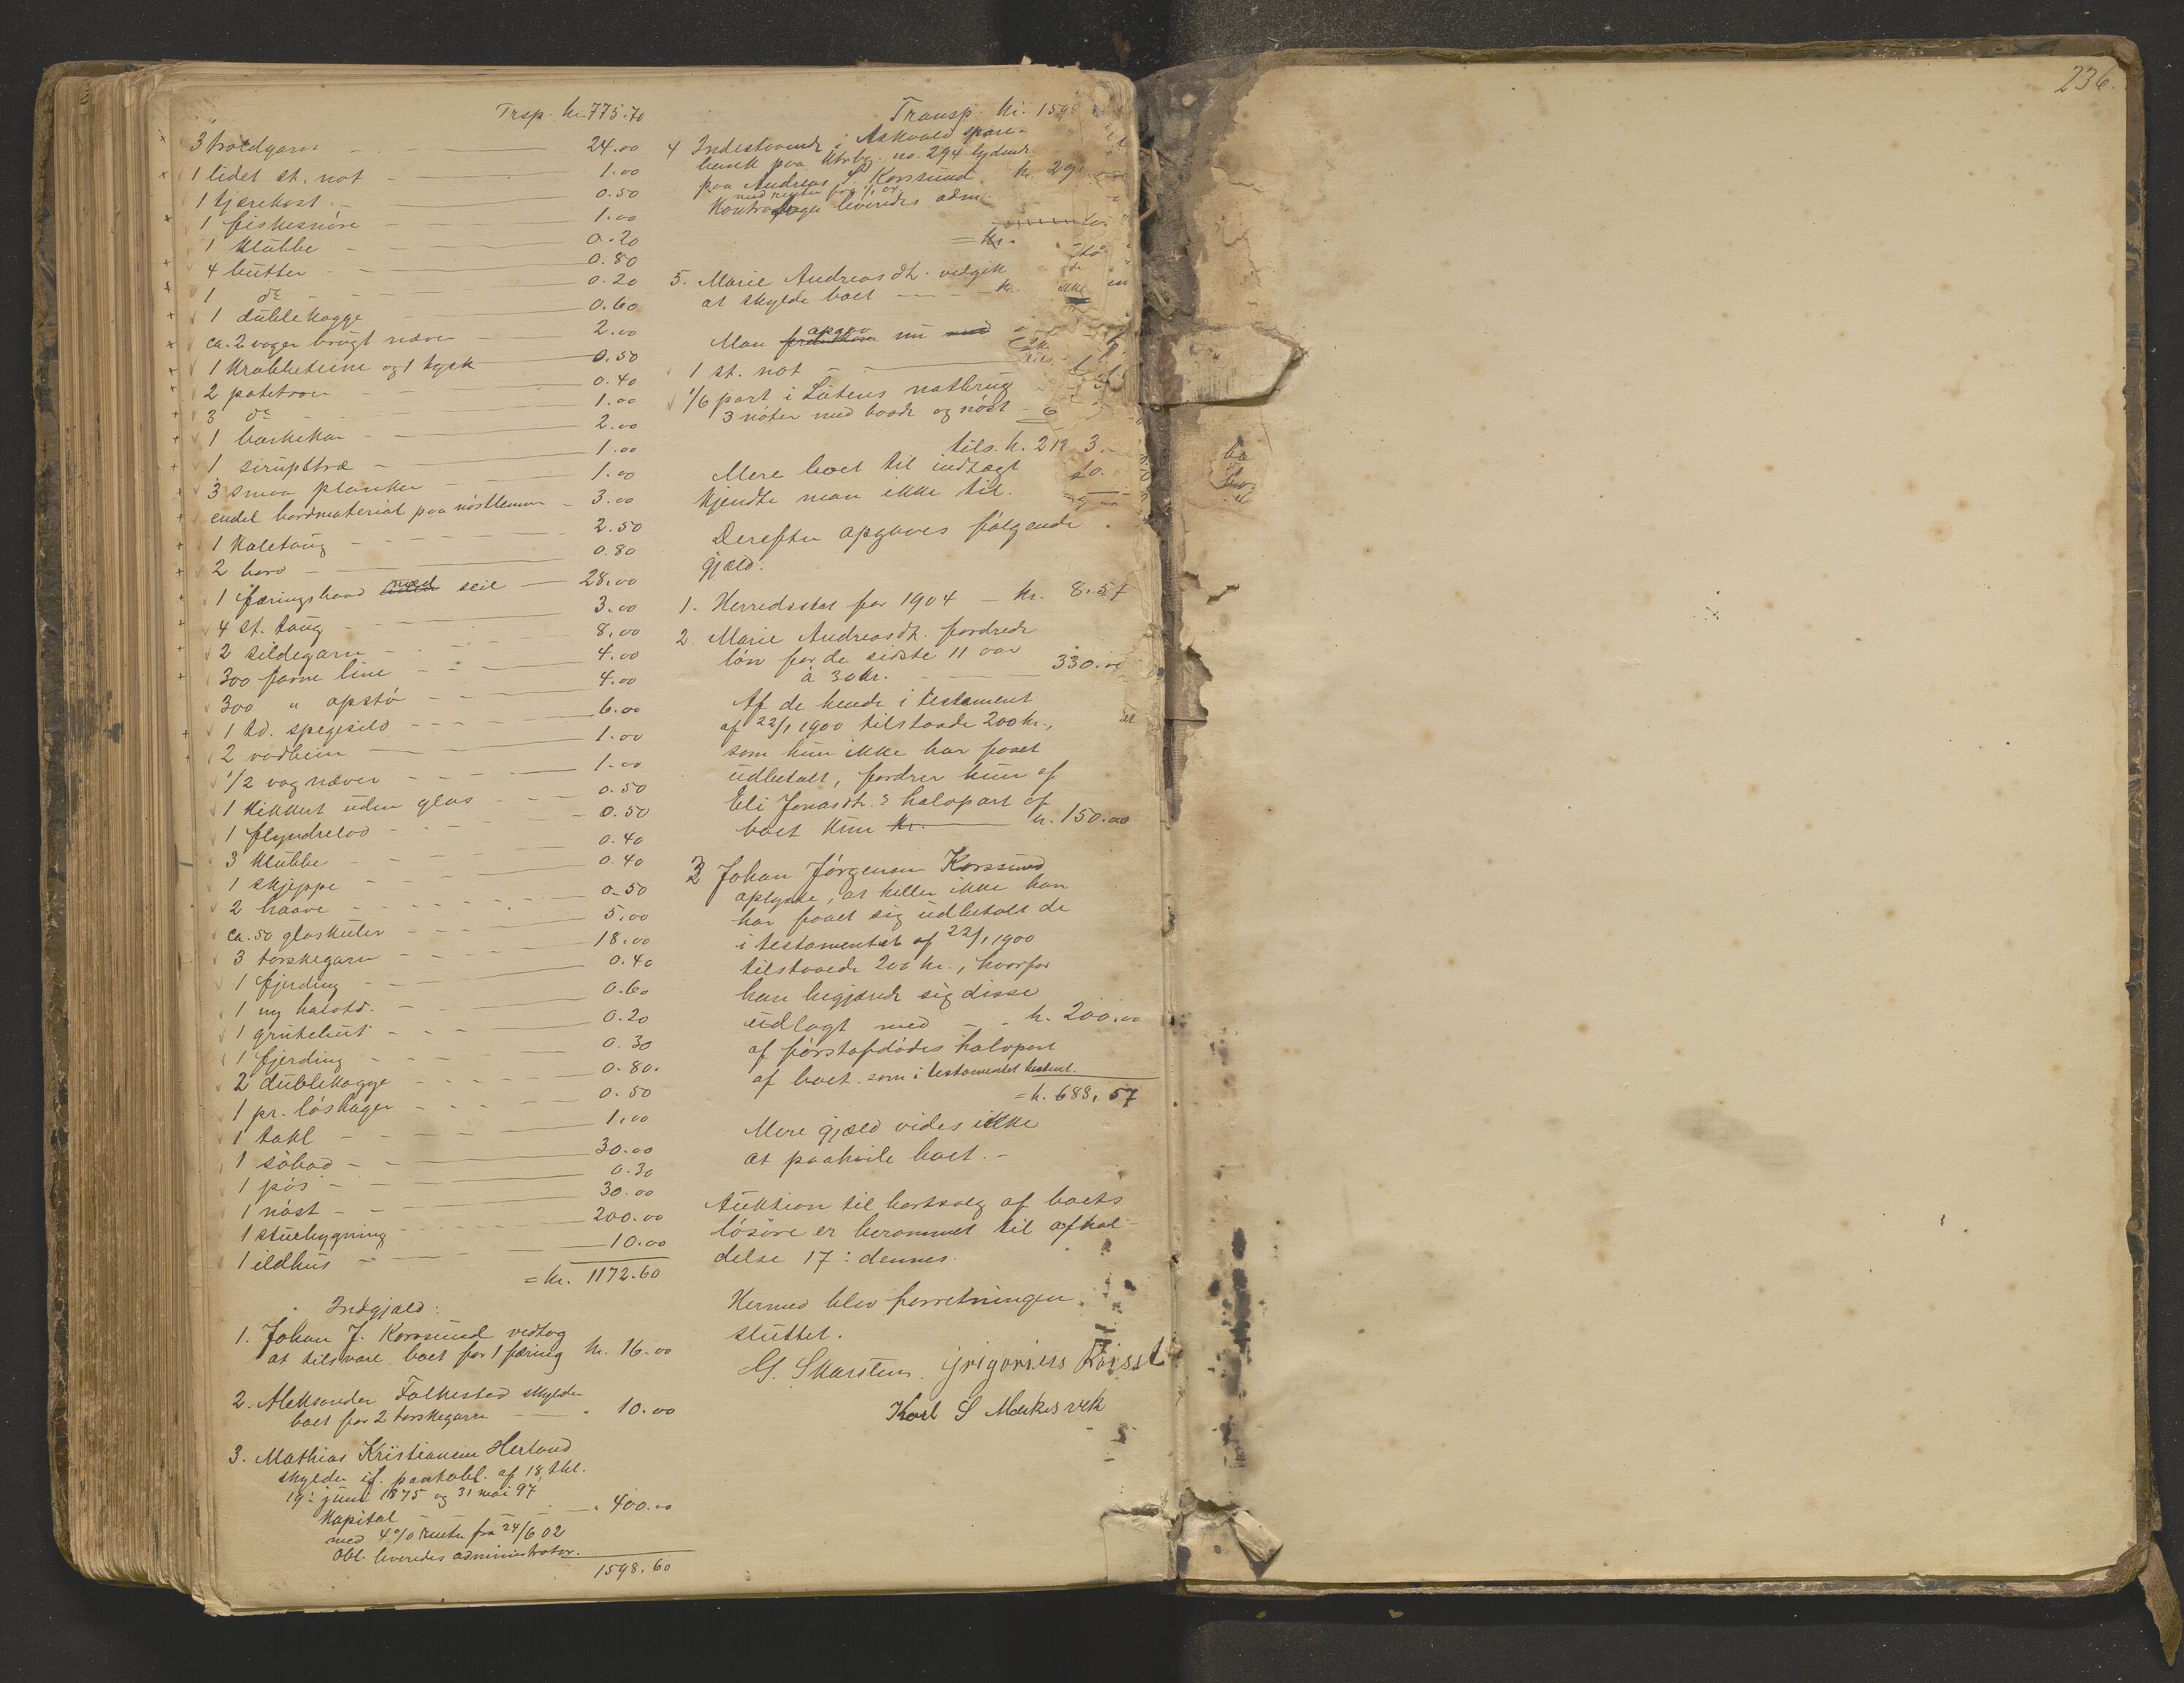 Trsp. kr. 775.70
3 troldgarn 24.00
1 lidet st. not 1.00
1 tjærekost 0.50
1 fiskesnöre 1.00
1 klubbe 0.20
4 bütter 0.80
1 do 0.20
1 dublekagge 0.60
ca. 2 voger brügt næver 2.00
1 krabbeteine og 1 tysk 0.50
2 0.40
3 do 1.00
1 barkekar 2.00
1 sirüpstræ 1.00
3 smaa planker 1.00
endel bordmaterial paa nöstlemmen 3.00
1 Kaletaug 2.50
2 bord 0.80
1 færingsbaad med seil 28.00
4 st. taug 3.00
2 sildegarn 8.00
300 favne line 4.00
300 " opstö 4.00
1 td. spegesild 6.00
2 vadbein 1.00
1/2 vog næver 1.00
1 Kikkert uden glas 0.50
1 flyndrelod 0.50
3 klübbe 0.40
1 skjeppe 0.40
2 haave 0.50
ca. 50 glaskuler 5.00
3 torskegarn 18.00
1 fjerding 0.40
1 ny halvtd. 0.60
1 grütebüt 0.20
1 fjerding 0.30
2 dublekagge 0.80
1 pr. löshager 0.50
1 takl 1.00
1 söbod 30.00
1 pös 0.30
1 nöst 30.00
1 stuebygning 200.00
1 ildhus 10.00
= kr. 1172.60
Indgjæld:
1. Johan J. Korssund vedtog
at tilsvare boet for 1 færing kr. 16.00
2. Aleksander Folkestad skylder
boet for 2 torskegarn " 10.00
3. Mathias Kristiansen Herland
skylder if. pantobl. af 18, thl.
19: juni 1875 og 31 mai 97
Kapital " 400.00
med 4% rente fra 24/6 02
Obl. leveredes administrator.
1598.60
Transp. kr. 159
4 Indestaaende i Askvold spare-
bank paa Ktrbg. no. 294 lydende
paa Andreas S. Korssund kr. 29
med renter fra 1/1 04
Kontrabogen leveredes adm.
= kr.
5. Marie Andreasdt. vedgik
at skylde boet kr.
Man opgav nu
1 st. not
1/6 part i Lütens notbrug
3 nöter med baade og nöst
tils. kr. 21
Mere boet til indtægt
kjendte man ikke til.
Derefter opgaves fölgende
gjæld:
1. Herredsskat for 1904 kr. 8.57
2. Marie Andreasdt. fordrede
lön for de sidste 11 aar
à 30 kr. 330.00
Af de hende i testament
af 22/1 1900 tilstaaede 200 kr.,
som hun ikke har faaet
udbetalt, fordrer hun af
Eli Jonasdt.s halvpart af
boet kun kr. kr. 150.00
3 Johan Jörgensen Korssund
oplyste, at heller ikke han
har faaet sig udbetalt de
i testamentet af 22/1 1900
tilstaaede 200 kr., hvorfor
han begjærede sig disse
udlagt med kr. 200.00
af förstafdödes halvpart
af boet. som i testamentet bestemt.
= kr. 688,57
Mere gjæld vides ikke
at paahvile boet.-
Auktion til bortsalg af boets
lösöre er berammet til afhol-
delse 17: dennes.
Hermed blev forretningen
sluttet.
G. Skarstein. Grigorius
Karl S
236.